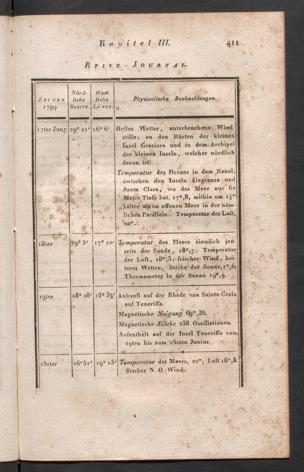 Kapitel III. 411
Reise-Journal.
Zeiten 1799. Nörd- liche Breite. West- liche Länge. Physicalische Beobachtungen.
17ter Juny 29° 21' 16° 6' Helles Wetter, unterbrochene Wind
stille; an den Küsten der kleinen
Insel Graciosa und in dem Archipel
der kleinen Inseln, welcher nördlich
davon ist.
Temperatur des Oceans in dem Kanal,
zwischen den Inseln Alegranza und
Santa Clara, wo das Meer nur 60
Meter Tiefe hat, 17°,8, mithin um
kälter als im offenen Meer in der näm-
lichen Parallele. Temperatur der Luft,
20°.
18ter 17° 10' Temperatur des Meers ziemlich jen-
seits der Sonde, 18°,7; Temperatur
der Luft, 18°,5; frischer Wind, hei-
teres Wetter. Stärke der Sonne, 1°,6
Thermometer in der Sonne
19ter 18° 33' Ankunft auf der Rhede von Sainte Croix
auf Teneriffa.
Magnetische Neigung 69°,35.
Magnetische Stärke 238 Oscillationen.
Aufenthalt auf der Insel Teneriffa vom
19ten bis zum 25sten Junius
25ster 26° 51' 19° 15' Temperatur des Meers, 20°; Luft 18°,8.
Starker N. O. Wind.